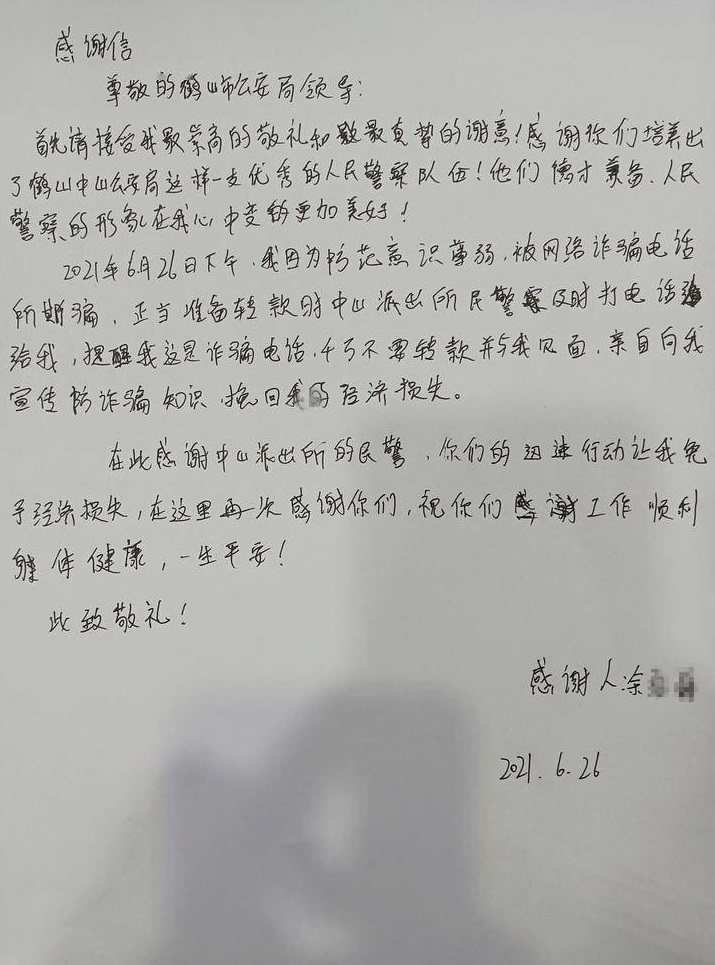 感谢信
尊敬的鹤山市公安局领导：
首先请接受我最崇高的敬礼和最真挚的谢意！感谢你们培养出
了鹤山中山公安局这样一支优秀的人民警察队伍！他们德才兼备、人民
警察的形象在我心中变的更加美好！
2021年6月26日下午，我因为防范意识薄弱，被网络诈骗电话
所欺骗，正当准备转款时中山派出所民警及时打电话
给我，提醒我这是诈骗电话，千万不要转款并与我见面，亲自向我
宣传防诈骗知识，挽回我的经济损失。
在此感谢中山派出所的民警，你们的迅速行动让我免
予经济损失，在这里再一次感谢你们，祝你们工作顺利
身体健康，一生平安！
此致敬礼！
感谢人：涂
2021.6.26